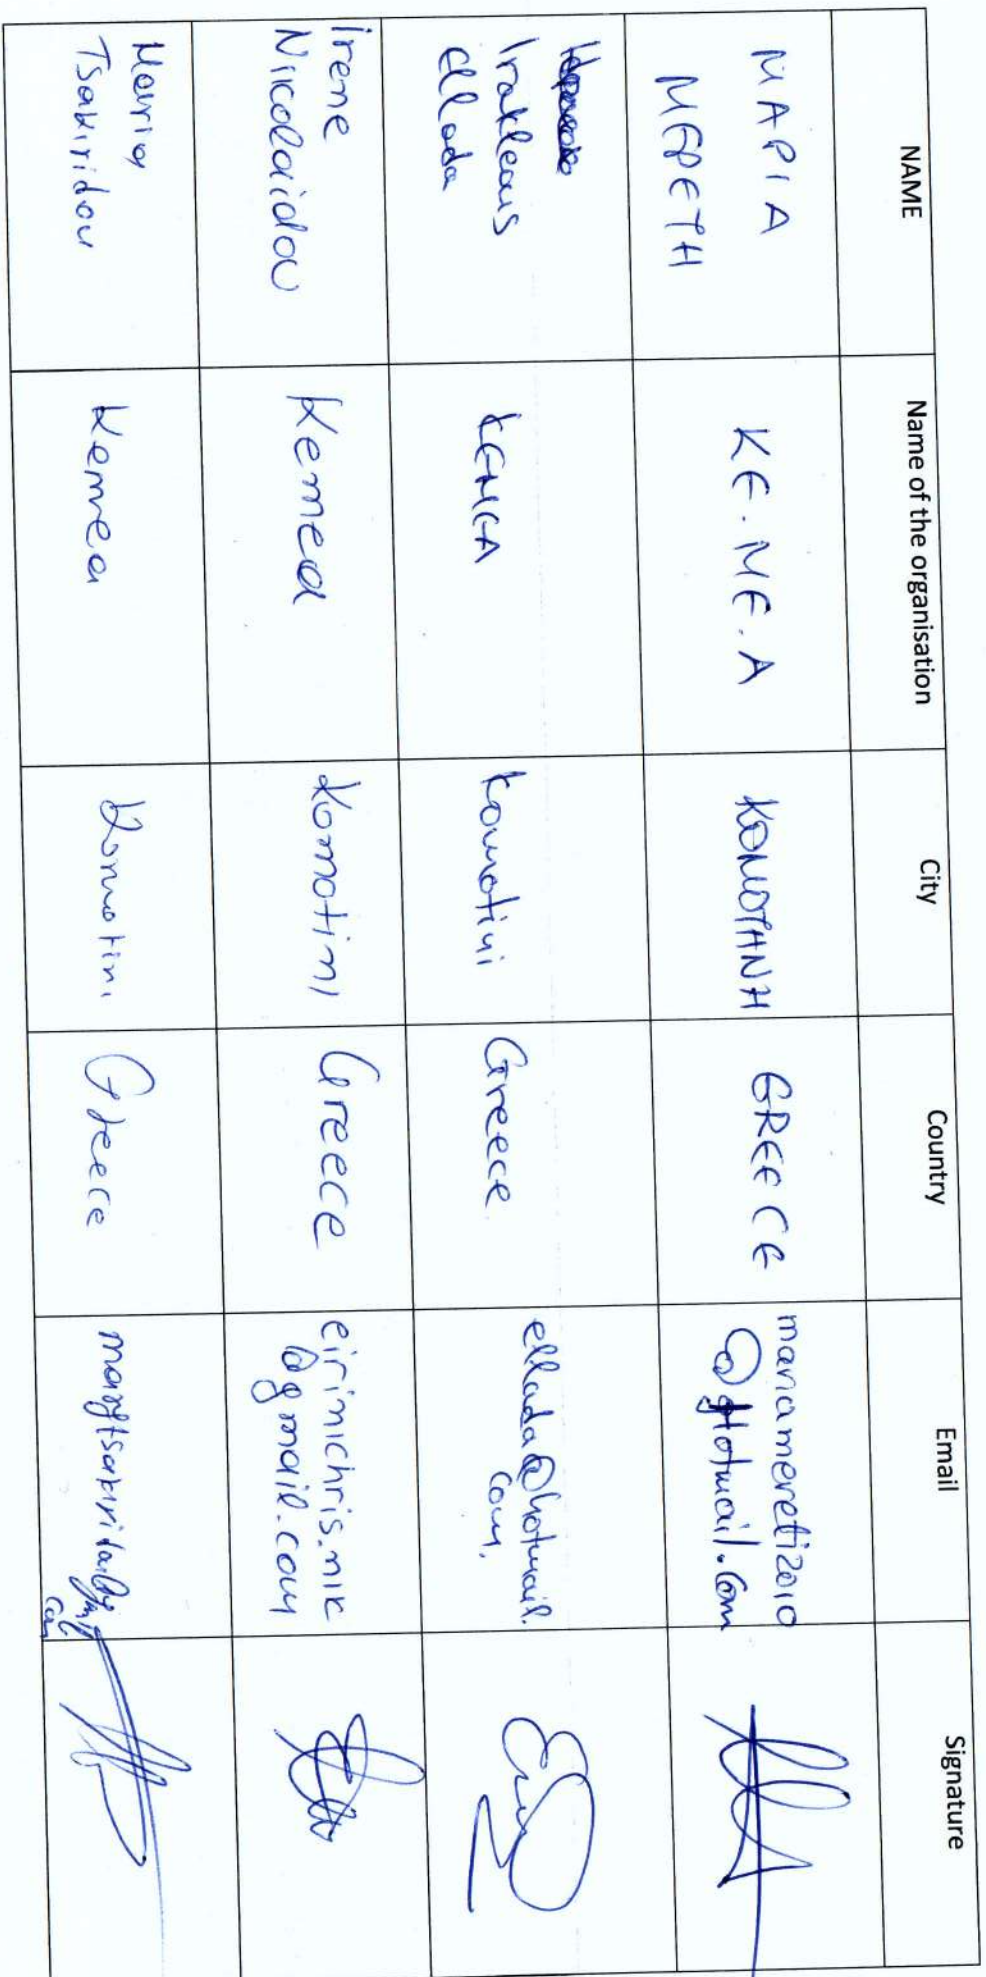 NAME Name of the organisation City Country Email Signature
ΜΑΡΙΑ
ΜΕΡΕΤΗ
ΚΕ.ΜΕ.Α
ΚΟΜΟΤΗΝΗ
GREECE
mariamereti2010
@Hotmail.com
Irakleous
Ellada
KEMEA
Komotini
Greece
ellada@hotmail.
com.
Irene
Nikolaidou
Kemea
Komotini
Greece
eirinichris.nik
@gmail.com
Maria
Tsakiridou
Kemea
Komotini
Greece